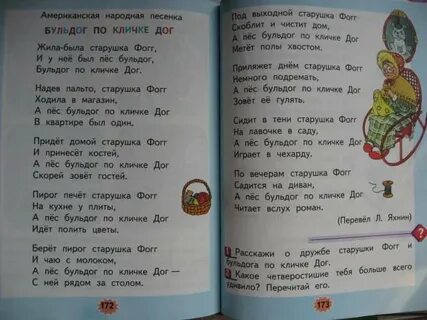 Американская народная песенка
БУЛЬДОГ ПО КЛИЧКЕ ДОГ
Жила-была старушка Фогг,
И у неё был пёс бульдог,
Бульдог по кличке Дог.
Надев пальто, старушка Фогг
Ходила в магазин,
А пёс бульдог по кличке Дог
В квартире был один.
Придёт домой старушка Фогг
И принесёт костей,
А пёс бульдог по кличке Дог
Скорей зовёт гостей.
Пирог печёт старушка Фогг
На кухне у плиты,
А пёс бульдог по кличке Дог
Идёт полить цветы.
Берёт пирог старушка Фогг
И чаю с молоком,
А пёс бульдог по кличке Дог —
С ней рядом за столом.
172
Под выходной старушка Фогг
Скоблит и чистит дом,
А пёс бульдог по кличке Дог
Метёт полы хвостом.
Приляжет днём старушка Фогг
Немного подремать,
А пёс бульдог по кличке Дог
Зовёт её гулять.
Сидит в тени старушка Фогг
На лавочке в саду,
А пёс бульдог по кличке Дог
Играет в чехарду.
По вечерам старушка Фогг
Садится на диван,
А пёс бульдог по кличке Дог
Читает вслух роман.
(Перевёл Л. Яхнин)
?
1 Расскажи о дружбе старушки Фогг и
бульдога по кличке Дог.
2 Какое четверостишие тебя больше всего
удивило? Перечитай его.
173